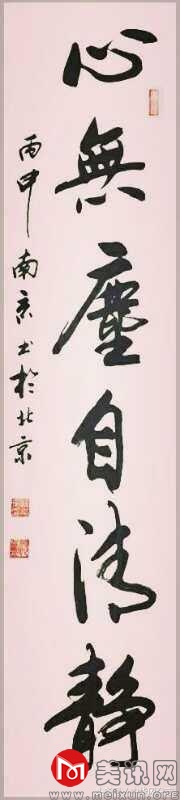 心無塵自清靜
丙申南京书於北京
美讯网
www.meixun.org